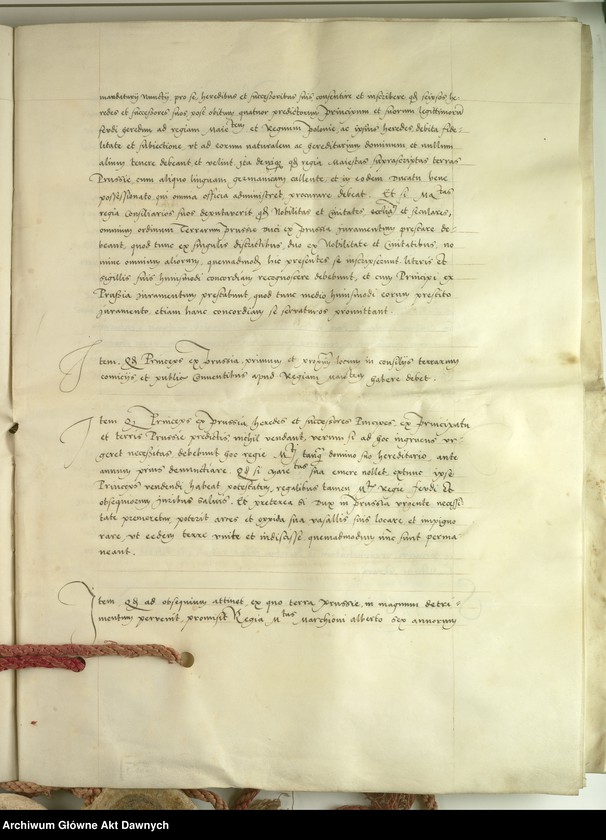 mandatarij Nunctij pro se, heredibus et successoribus suis consentire et inscribere qd ipsos he-
redes et successores suos post obitum quatuor predictorum principum et suorum legittimorum
feudi heredum ad regiam Maie tem et Regnum Polonie, ac ipsius heredes, debita fide-
litate et subiectione, ut ad eorum naturalem ac hereditarium dominum et nullum
alium tenere debeant et velint, ita qd regia Maiestas suprascriptas terras
Prussie, cum aliquo linguam germanicam callente, et in eodem Ducatu bene
possessionato, qui omnia officia administret, procurare debeat. Et si Ma tas
regia Consiliarios suos deputaverit qd Nobilitas et Civitates, et seculares,
omnium ordinum Terrarum Prussie Duci ex Prussia Juramentum prestare de-
beant, quod tunc ex singulis districtibus, duo ex Nobilitate et Civitatibus, no
mine omnium aliorum, quemadmodum hic presentes se inscripserunt literis et
sigillis suis huiusmodi concordiam recognoscere debebunt, et cum Principi ex
Prussia Juramentum prestabunt, quod tunc medio huiusmodi eorum prestito
Juramento, etiam hanc concordiam se servaturos promittant
Item. Qd Princeps ex Prussia, primum et locum in consilijs terrarum
comicijs, et publicis Conventibus apud Regiam Maie tem habere debet.
Item Princeps ex Prussia heredes et successores Principes, ex principatu
et terris Prussie predictis nichil vendant, verum si ad hoc ingruens ur-
geret necessitas, debebunt hoc regie M ti tanq domino suo hereditario, ante
annum prius denunctiare. Qd si Maie tas sua emere nollet, extunc ipse
Princeps vendendi habeat potestatem, regalibus tamen M tis Regie feudi et
obsequiorum juribus salvis. Et preterea si Dux in Prussia urgente necessi
tate premeretur, poterit arces et oppida sua vasallis suis locare et impigno
rare, ut eedem terre unite et indiscisse, quemadmodum nunc sunt perma
neant.
Item. Qd ad obsequium attinet, ex quo terra Prussie, in magnum detri-
mentum pervenit, promisit Regia M tas Marchioni Alberto sex annorum
Archiwum Główne Akt Dawnych